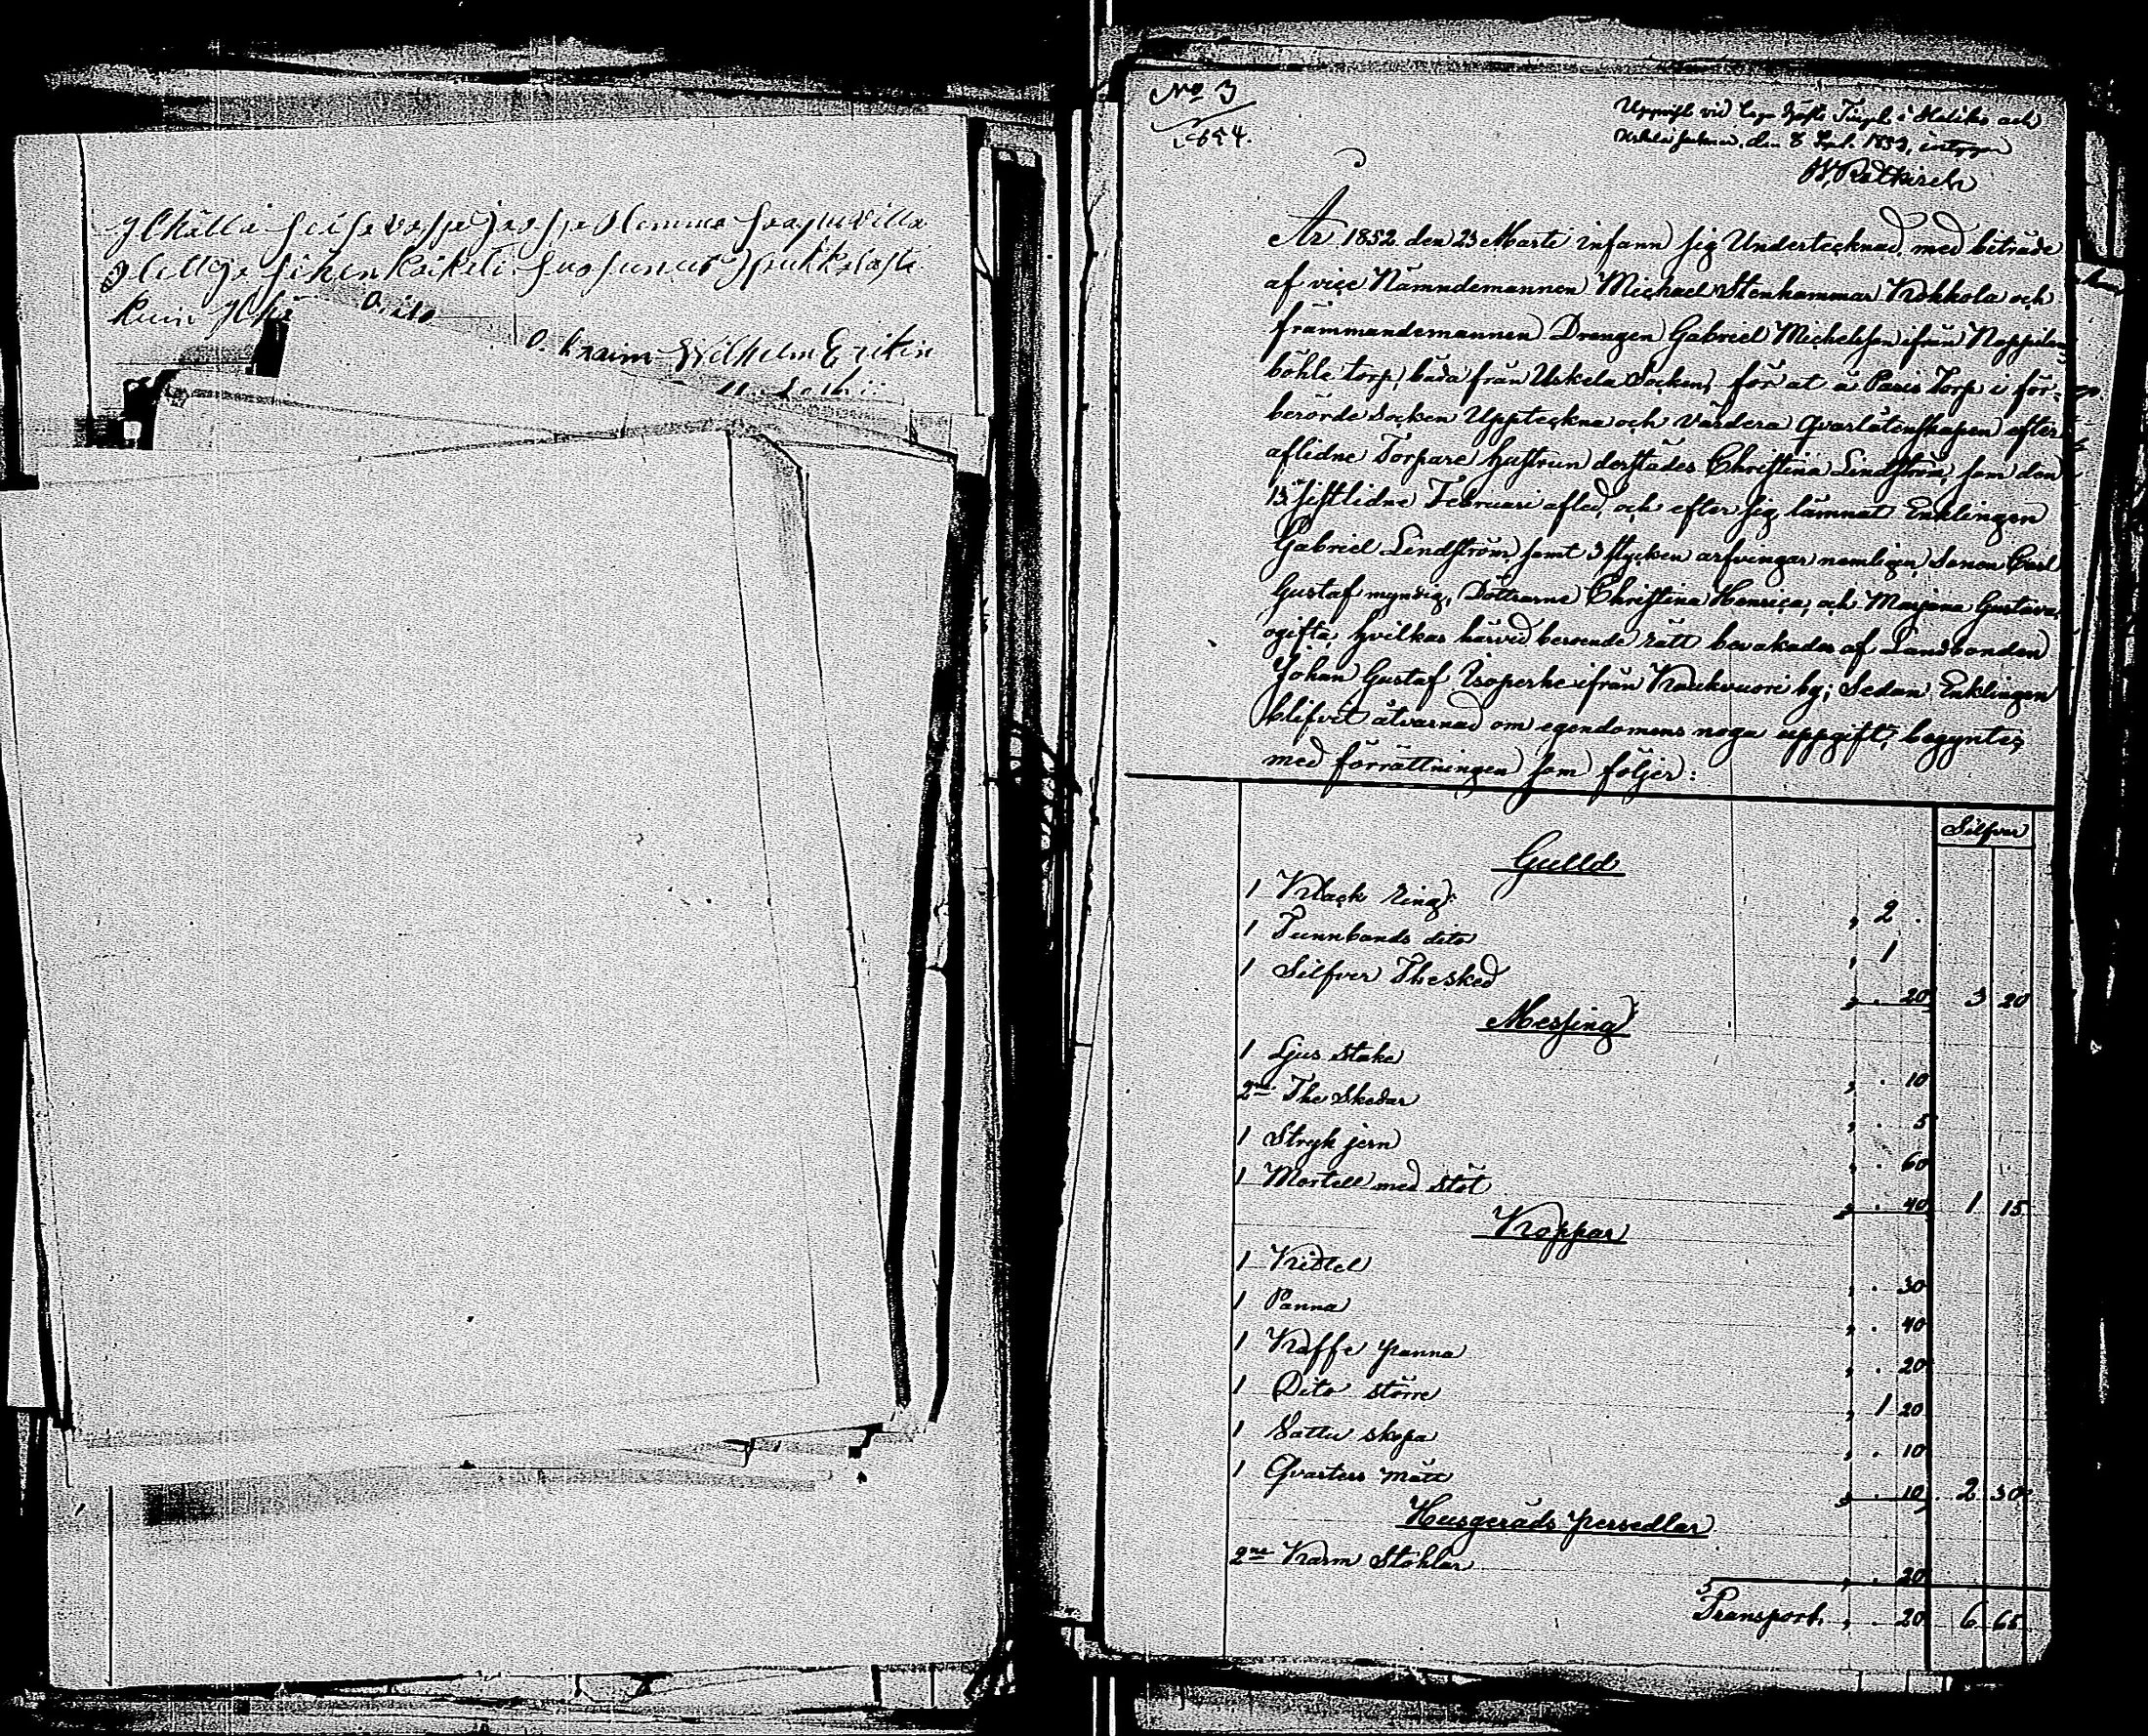 kuin
Wilhelm Erikin
No 3
1854.
Uppvist vid laga Ting i Haliko och
Uskela den 8 Sept. 1853, intygar
År 1852 den 23 Marti infann sig Undertecknad, med biträde
af vice Nämndemannen Michael Stenhammar Kokkola och
främmandemannen Drengen Gabriel Michelsson ifrån
böhle torp, båda från Uskela Socken, för at å Pasis Torp i för-
berörde Socken Uppteckna och värdera Qvarlåtenskapen efter
aflidne Torpare hustrun derstädes Christina Lindström, som den
13 sistlidne Februari afled, och efter sig lämnat Enklingen
Gabriel Lindström samt 3 stycken arfvingar nemligen, Sonen Carl
Gustaf myndig, Döttrarne Christina Henrica, och Marjana Gustava,
ogifta, hvilkas härvid beroende rätt bevakades af Landbonden
Johan Gustaf Isoperhe ifrån Kaukvuori by; Sedan Enklingen
blifvit åtvarnad om egendomens noga uppgift, begyntes
med förrättningen som följer:
Silfver
Gulld
1 Klack ring " 2 .
1 Tunnbands dito " 1
1 Silfver Thesked " . 20 3 20
Messing
1 Ljus stake " . 10
2ne The Skedar " . 5
1 Stryk jern " . 60
1 Mortell med stöt " . 40 1 15
Koppar
1 Kittel " . 30
1 Panna " . 40
1 Kaffe panna " . 20
1 Dito större " 1 20
1 Sattu skopa " . 10
1 Qvarters mått " . 10 2 30
Husgeråds persedlar
2ne Karm Stohlar " . 20
Transport " . 20 6 65